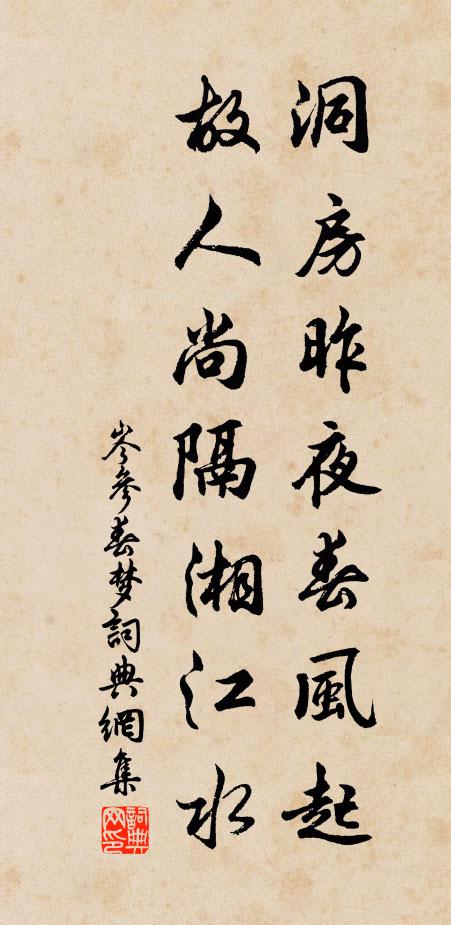 洞房昨夜春風起
故人尚隔湘江水
岑參春梦詞典網集
詞典
网印